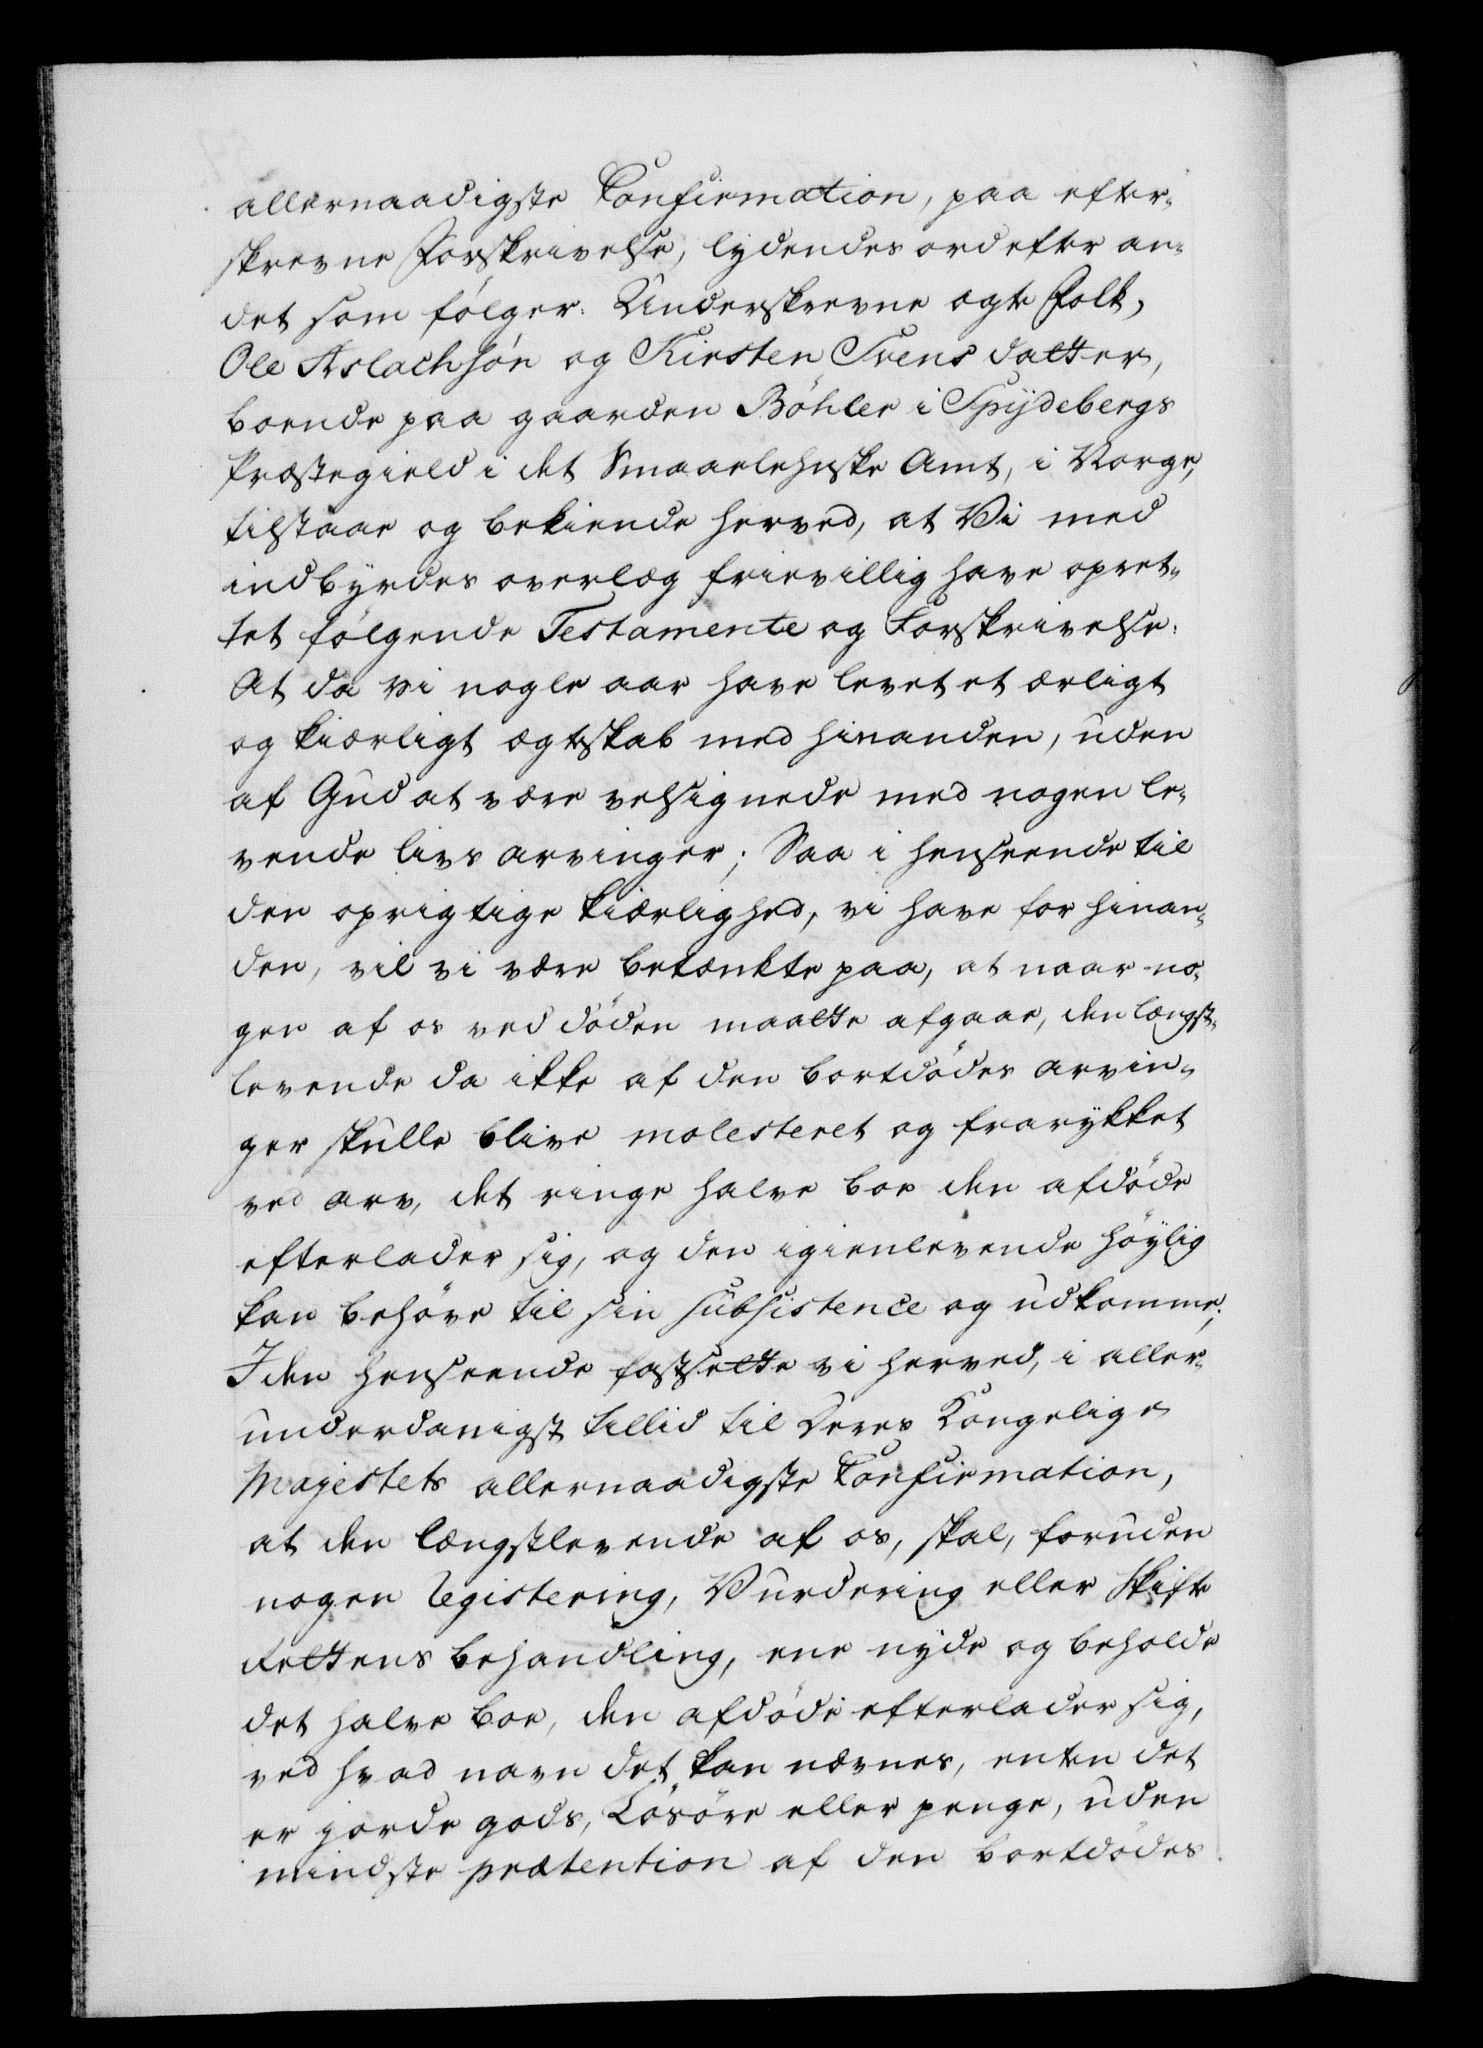 allernaadigste Confirmation, paa efter-
skrevne Forskrivelse, lydendes ord efter an-
det som følger: Underskrevne ægte Folk,
Ole Aslachsøn og Kirsten Svens datter,
boende paa gaarden Bøhler i Spÿdebergs
Præstegield i det Smaalehnske Amt, i Norge,
tilstaar og bekiende herved, at Vi med
indbyrdes overlæg frievillig have opret-
tet følgende Testamente og Forskrivelse:
At da vi nogle aar have levet et ærligt
og kiærligt ægteskab med hinanden, uden
af Gud at være velsignede med nogen le-
vende livs arvinger; Saa i henseende til
den oprigtige kiærlighed, vi have for hinan-
den, vil vi være betænkte paa, at naar no-
gen af os ved døden maatte afgaae, den længst-
levende da ikke af den bortdødes arvin-
ger skulle blive molesteret og frarykket
ved arv, det ringe halve boe den afdøde
efterlader sig, og den igienlevende høylig
kan behøve til sin subsistence og udkomme;
I den henseende fastsette vi herved, i aller-
underdanigst tillid til Deres Kongelige
Majestets allernaadigste Confirmation,
at den længstlevende af os, skal, foruden
nogen Registering, Vurdering eller Skifte
Rettens behandling, ene nyde og beholde
det halve boe, den afdøde efterlader sig,
ved hvad navn det kan nævnes, enten det
er jorde gods, Løsøre eller penge, uden
mindste prætention af den bortdødes